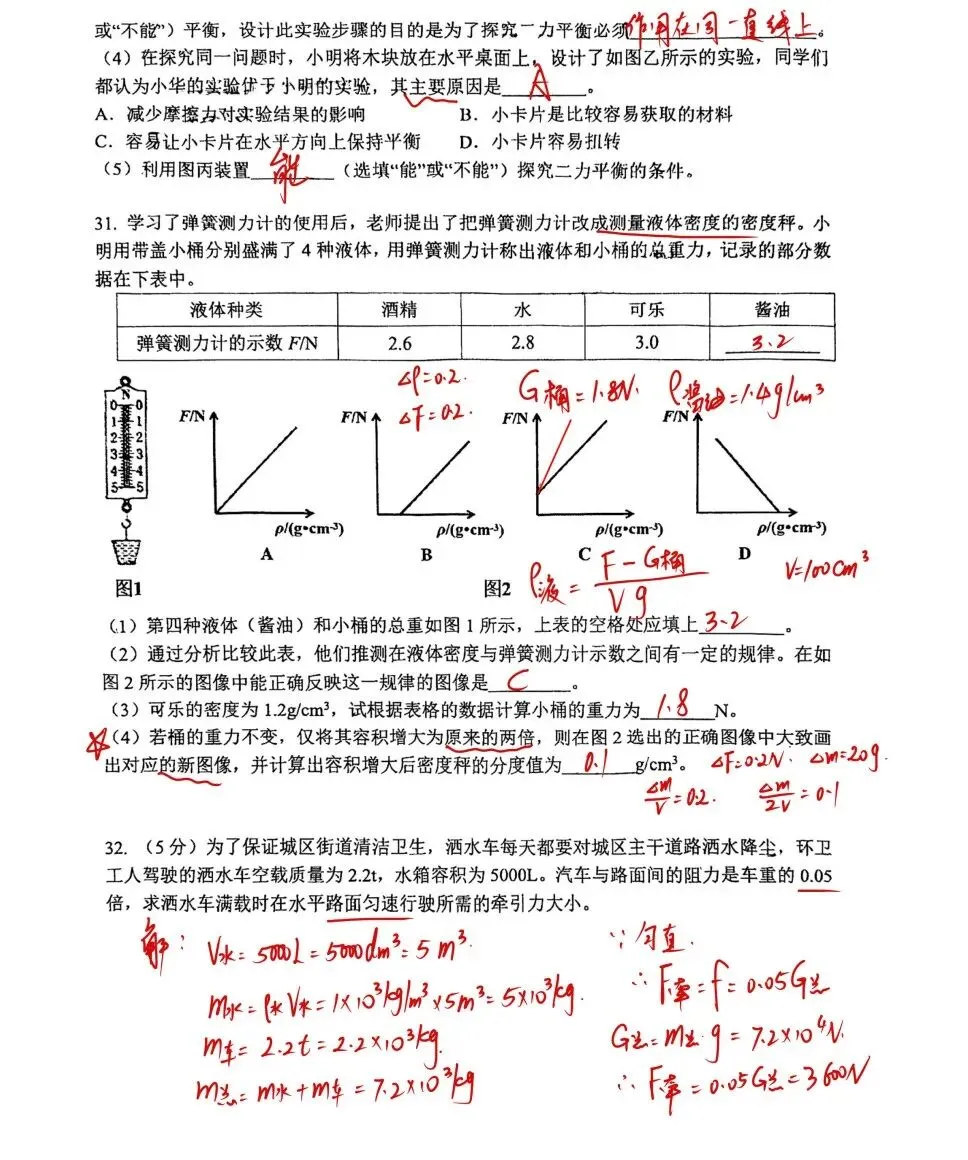 或“不能”）平衡，设计此实验步骤的目的是为了探究二力平衡必须作用在同一直线上。
（4）在探究同一问题时，小明将木块放在水平桌面上，设计了如图乙所示的实验，同学们
都认为小华的实验优于小明的实验，其主要原因是 A 。
A．减少摩擦力对实验结果的影响 B．小卡片是比较容易获取的材料
C．容易让小卡片在水平方向上保持平衡 D．小卡片容易扭转
（5）利用图丙装置 能 （选填“能”或“不能”）探究二力平衡的条件。
31. 学习了弹簧测力计的使用后，老师提出了把弹簧测力计改成测量液体密度的密度秤。小
明用带盖小桶分别盛满了 4 种液体，用弹簧测力计称出液体和小桶的总重力，记录的部分数
据在下表中。
液体种类 酒精 水 可乐 酱油
弹簧测力计的示数 F/N 2.6 2.8 3.0 3.2
Δρ=0.2.
ΔF=0.2.
G桶=1.8N.
ρ酱油=1.4g/cm³
N
0 0
1 1
2 2
3 3
4 4
5 5
F/N F/N F/N F/N
ρ/(g•cm-³) ρ/(g•cm-³) ρ/(g•cm-³) ρ/(g•cm-³)
A B C D
图1 图2
ρ液=F-G桶/Vg
V=100cm³
（1）第四种液体（酱油）和小桶的总重如图 1 所示，上表的空格处应填上 3.2 。
（2）通过分析比较此表，他们推测在液体密度与弹簧测力计示数之间有一定的规律。在如
图 2 所示的图像中能正确反映这一规律的图像是 C 。
（3）可乐的密度为 1.2g/cm³，试根据表格的数据计算小桶的重力为 1.8 N。
☆（4）若桶的重力不变，仅将其容积增大为原来的两倍，则在图 2 选出的正确图像中大致画
出对应的新图像，并计算出容积增大后密度秤的分度值为 0.1 g/cm³。 ΔF=0.2N. Δm=20g.
Δm/V=0.2. Δm/2V=0.1
32. （5 分）为了保证城区街道清洁卫生，洒水车每天都要对城区主干道路洒水降尘，环卫
工人驾驶的洒水车空载质量为 2.2t，水箱容积为 5000L。汽车与路面间的阻力是车重的 0.05
倍，求洒水车满载时在水平路面匀速行驶所需的牵引力大小。
解：V水=5000L=5000dm³=5m³.
m水=ρ水V水=1×10³kg/m³×5m³=5×10³kg.
m车=2.2t=2.2×10³kg.
m总=m水+m车=7.2×10³kg
∵匀直.
∴F牵=f=0.05G总
G总=m总g=7.2×10⁴N.
∴F牵=0.05G总=3600N